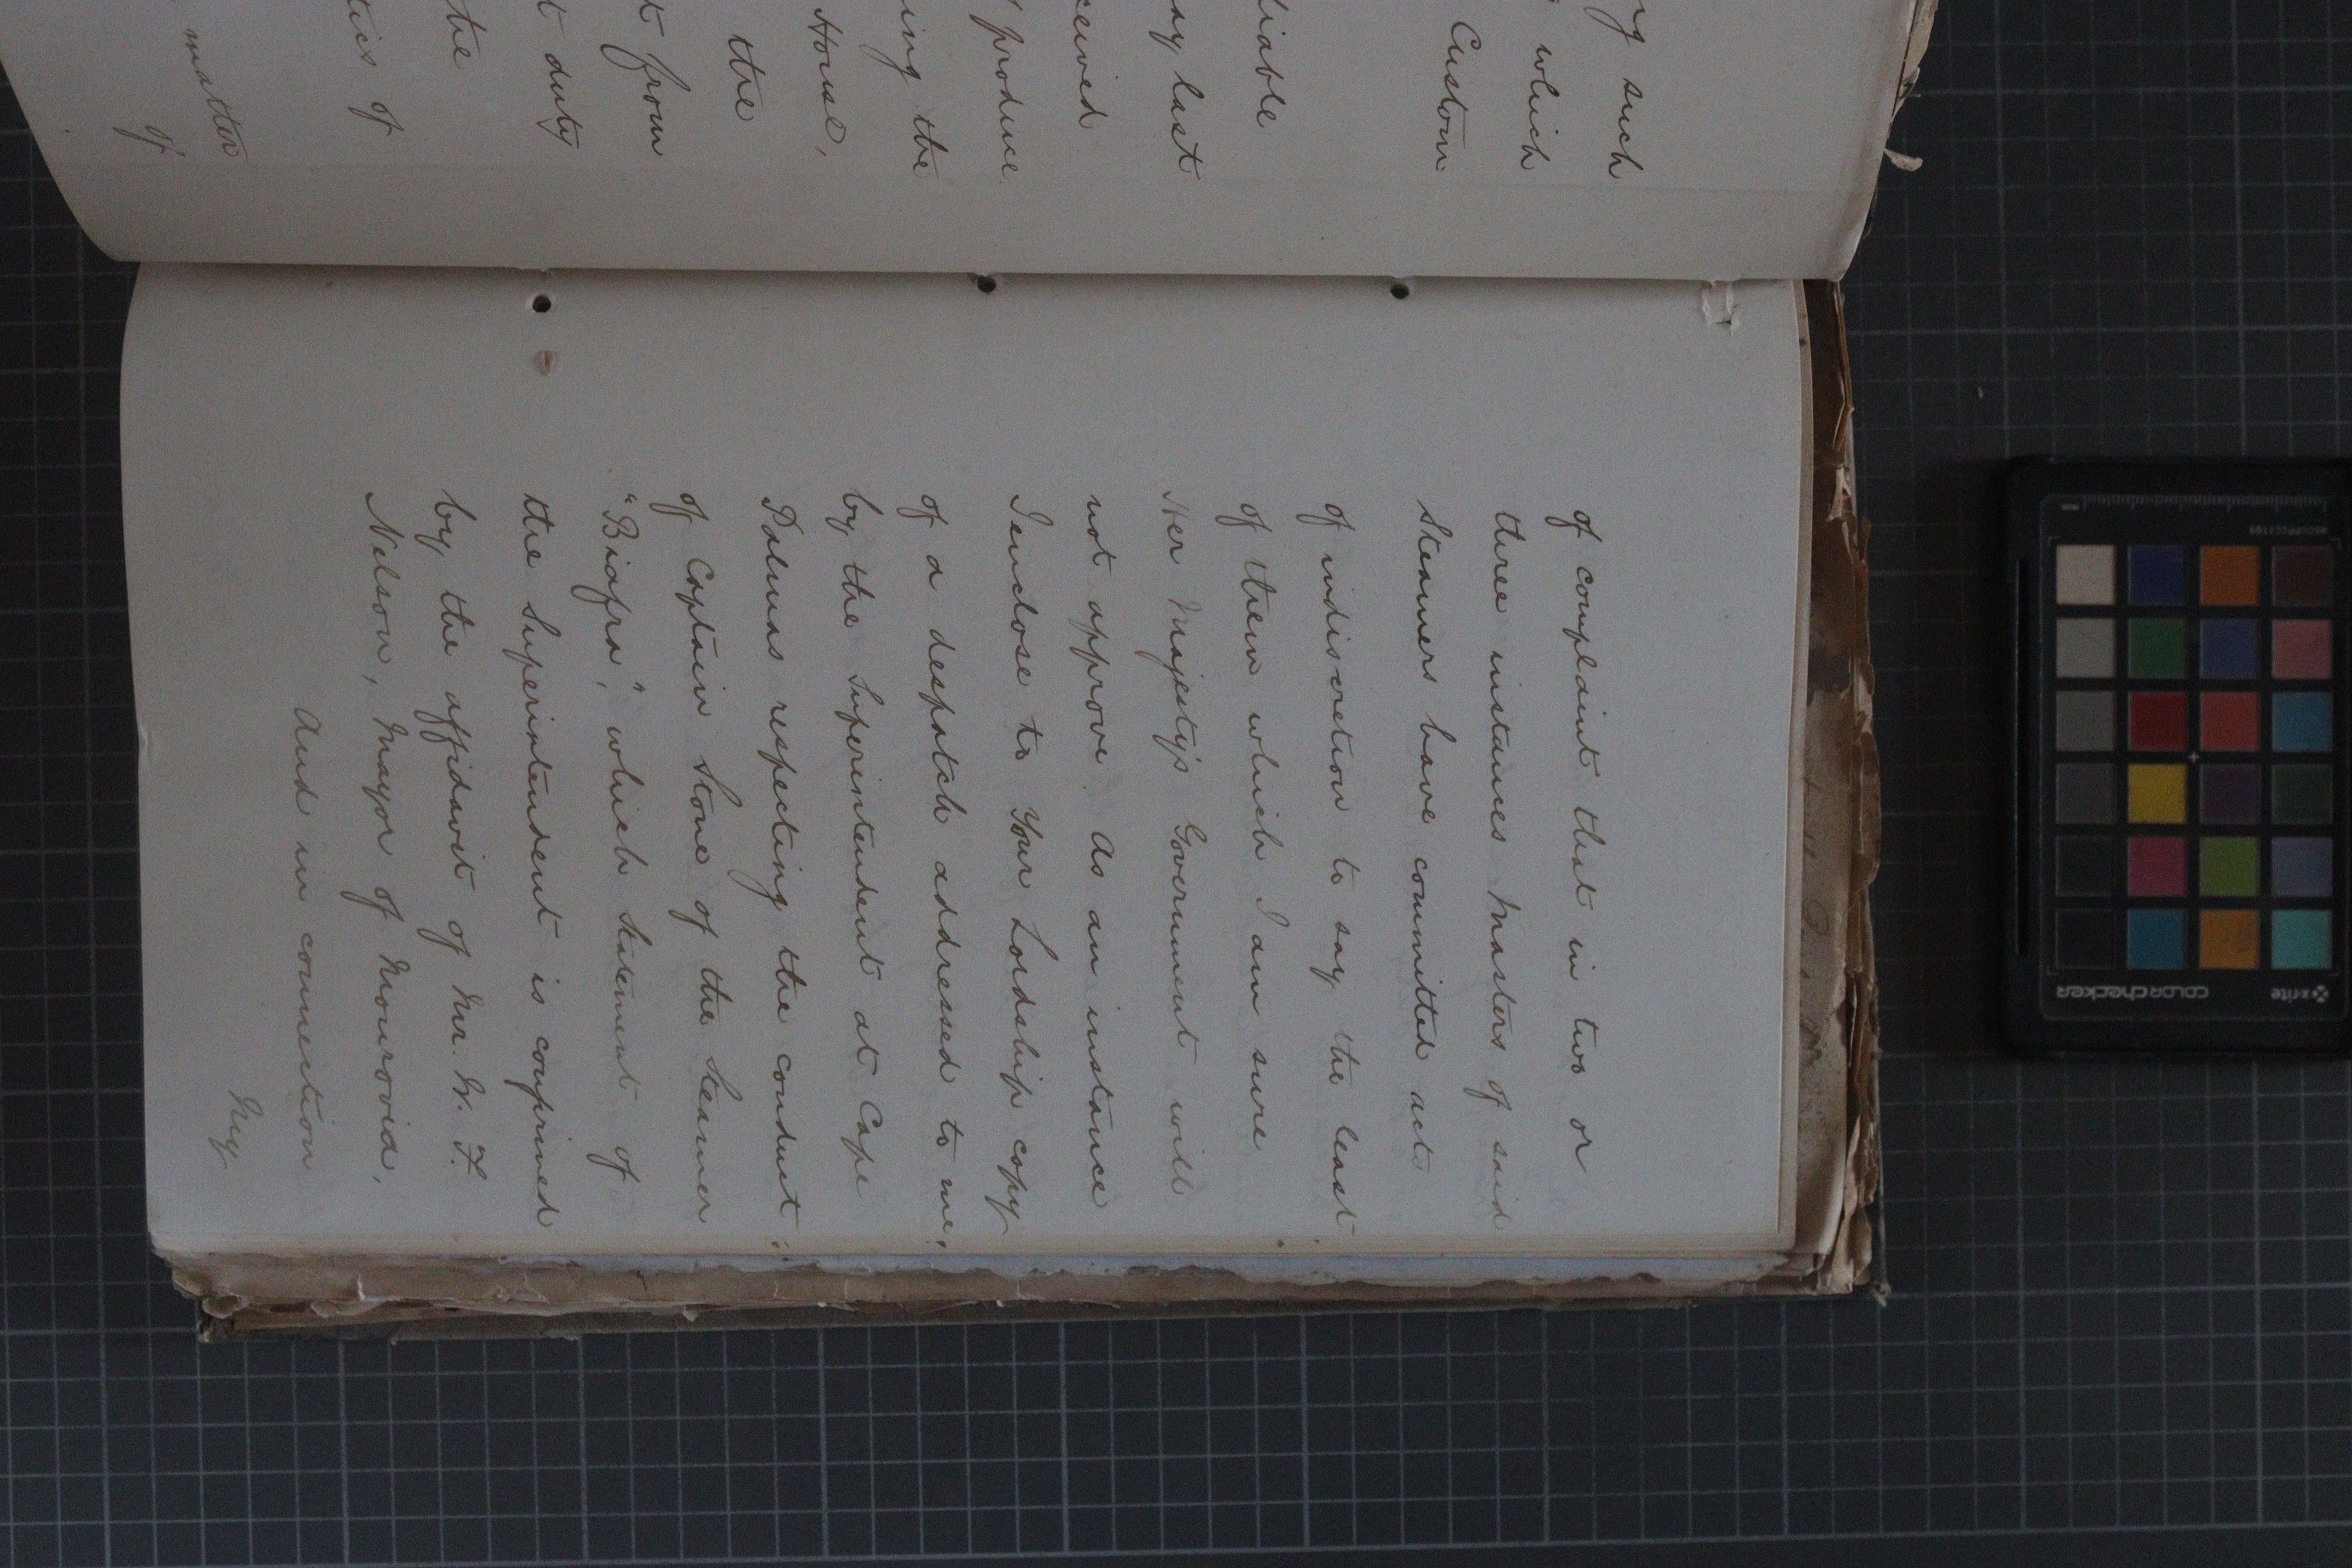 ng such
which
Custom
liable
ay last
ceived
produce
ing the
House,
the
t from
t duty
the
tics of
matter
of
of complaint that in two or
three instances Masters of said
Steamers have committed acts
of indiscretion to say the least
of them which I am sure
Her Majesty's Government will
not approve. As an instance
I enclose to Your Lordship copy
of a despatch addressed to me,
by the Superintendent at Cape
Palmas respecting the conduct
of Captain Stone of the Steamer
"Biafra", which statement of
the Superintendent is confirmed
by the affidavit of Mr. W. F.
Nelson, Mayor of Monrovia,
And in connection
My
x-rite
colorchecker